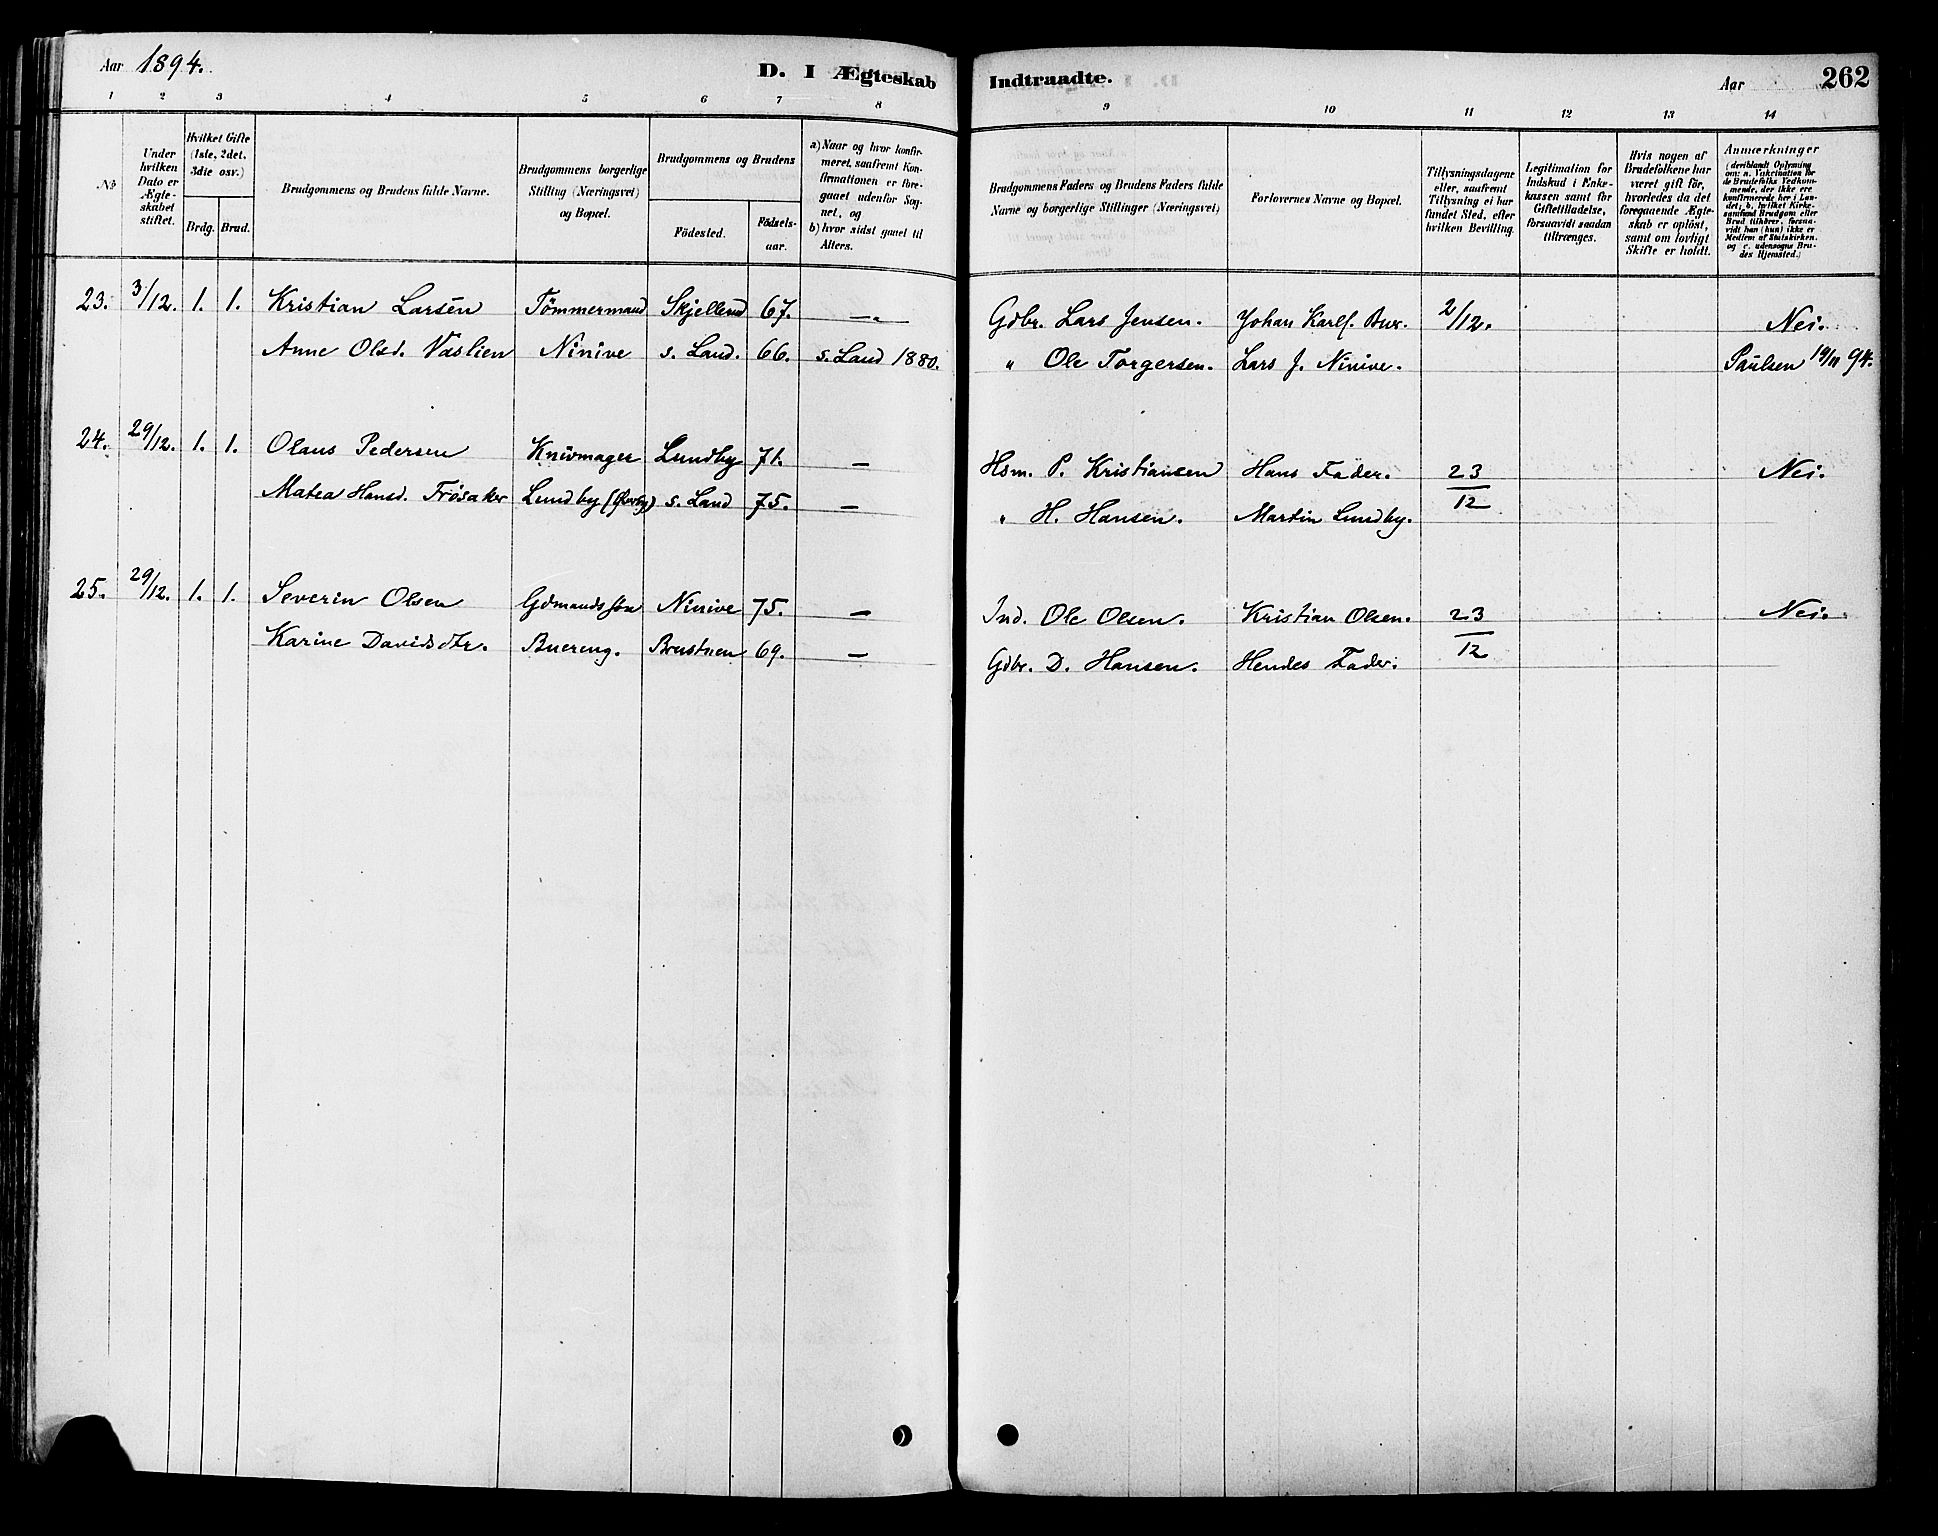 Aar 1894.
D. I Ægteskab Indtraadte.
Aar 262
1 2 3 4 5 6 7 8 9 10 11 12 13 14
No
Under hvilken Dato er Ægteskabet stiftet.
Hvilket Gifte (1ste, 2det, 3die osv.)
Brdg. Brud.
Brudgommens og Brudens fulde Navne.
Brudgommens borgerlige Stilling (Næringsvei) og Bopæl.
Brudgommens og Brudens
Födested. Födsels-aar.
a) Naar og hvor konfirmeret, saafremt Konfirmationen er foregaaet udenfor Sognet, og
b) hvor sidst gaaet til Alters.
Brudgommens Faders og Brudens Faders fulde Navne og borgerlige Stillinger (Næringsvei)
Forlovernes Navne og Bopæl.
Tillysningsdagene eller, saafremt Tillysning ei har fundet Sted, efter hvilken Bevilling.
Legitimation for Indskud i Enkekassen samt for Giftetilladelse, forsaavidt saadan tiltrænges.
Hvis nogen af Brudefolkene har været gift før, hvorledes da det foregaaende Ægteskab er opløst, samt om lovligt Skifte er holdt.
Anmærkninger
(deriblandt Oplysning om: a. Vakcination for de Brudefolks Vedkommende, der ikke ere konfirmerede her i Landet; b. hvilket Kirkesamfund Brudgom eller Brud tilhører, forsaavidt han (hun) ikke er Medlem af Statskirken, og c. udensogns Brudes Hjemsted.)
23. 3/12. 1. 1. Kristian Larsen Tömmermand Skjellerud 67. —"— Gdbr. Lars Jensen. Johan Karls. Bur. 2/12. Nei.
Anne Olsd. Vaslien Ninive s. Land. 66. s. Land 1880. " Ole Torgersen. Lars J. Ninive. Paulsen 94.
24. 29/12. 1. 1. Olaus Pedersen Knivmager Lundby 71. — Hsm. P. Kristiansen Hans Fader. 23/12 Nei.
Matea Hansd. Frösaker Lundby s. Land 75. — " H. Hansen. Martin Lundby.
25. 29/12. 1. 1. Severin Olsen Gdmandssön Ninive 75. — Ind. Ole Olsen. Kristian Olsen. 23/12 Nei.
Karine Davidsdtr. Buereng. Brustuen 69. — Gdbr. D. Hansen. Hendes Fader.